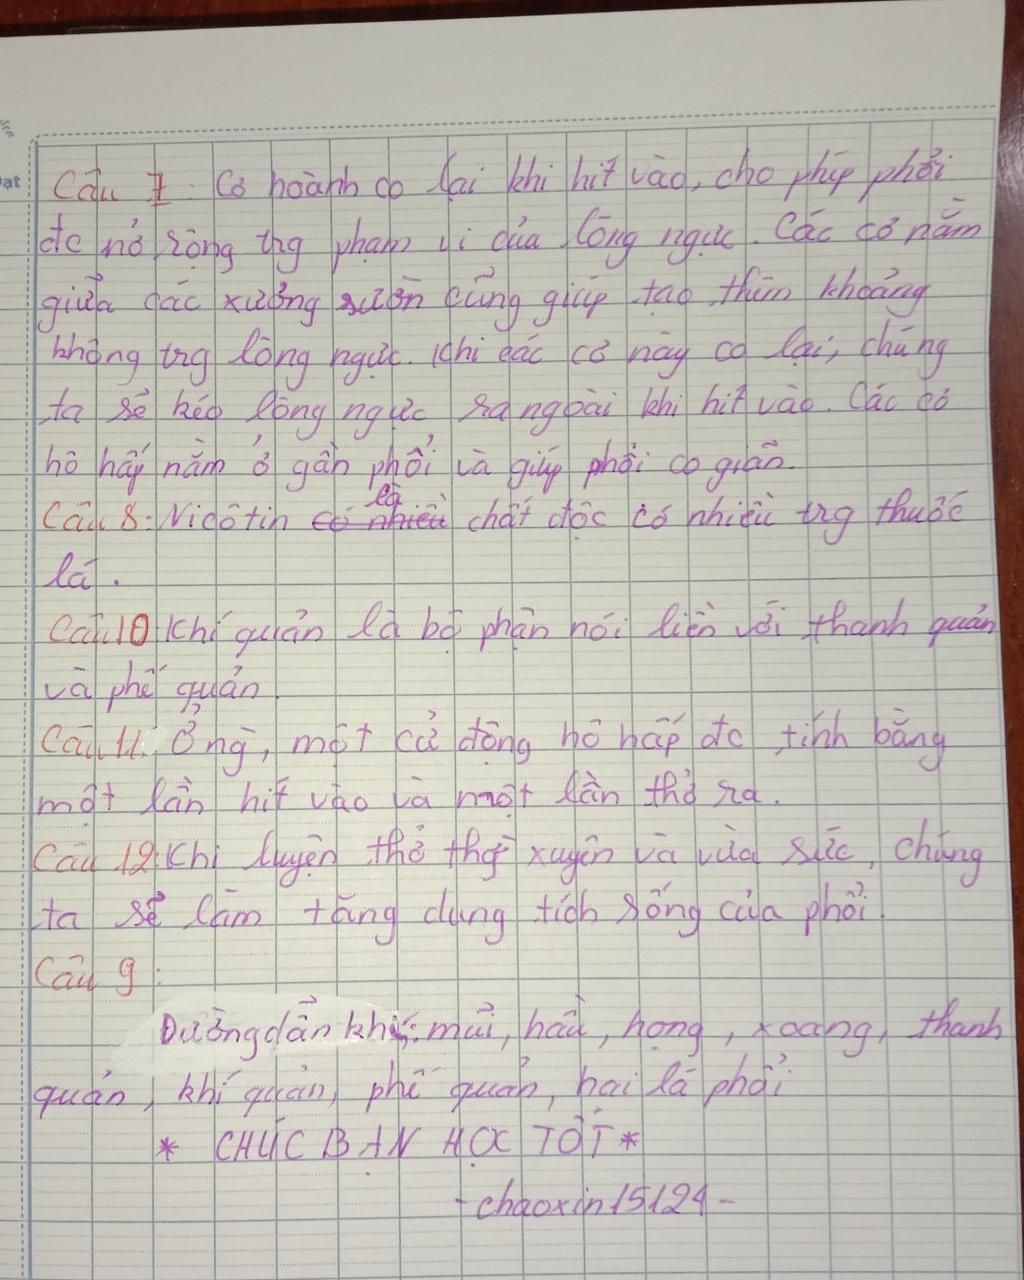 Câu 7: Cơ hoành co lại khi hít vào, cho phép phổi
đc nở rộng trg phạm vi của lồng ngực. Các cơ nằm
giữa các xương sườn cũng giúp tạo thêm khoảng
không trg lồng ngực. Khi các cơ này co lại, chúng
ta sẽ kéo lồng ngực ra ngoài khi hít vào. Các cơ
hô hấp nằm ở gần phổi và giúp phổi co giãn.
Câu 8: Nicôtin có nhiều là chất độc có nhiều trg thuốc
lá.
Câu 10: Khí quản là bộ phận nối liền với thanh quản
và phế quản.
Câu 11. Ở ng, một cử động hô hấp đc tính bằng
một lần hít vào và một lần thở ra.
Câu 12: Khi luyện thở thg xuyên và vừa sức, chúng
ta sẽ làm tăng dung tích sống của phổi.
Câu 9:
Đường dẫn khí: mũi, hầu, họng, xoang, thanh
quản, khí quản, phế quản, hai lá phổi
* CHÚC BẠN HỌC TỐT *
- chaoxin15124 -